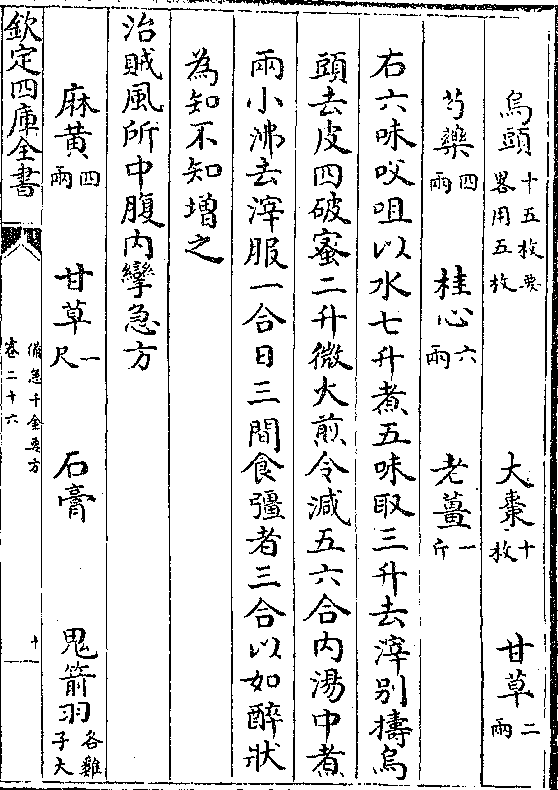 烏頭十五枚要畧用五枚　大棗十枚　甘草二兩
芍藥四兩　桂心六兩　老薑一斤
右六味㕮咀以水七升煮五味取三升去滓别擣烏
頭去皮四破蜜二升微火煎令減五六合内湯中煮
兩小沸去滓服一合日三間食彊者三合以如醉狀
為知不知增之
治賊風所中腹内攣急方
麻黄四兩　甘草一尺　石膏　鬼箭羽各雞子大
欽定四庫全書　備急千金要方卷二十六　十